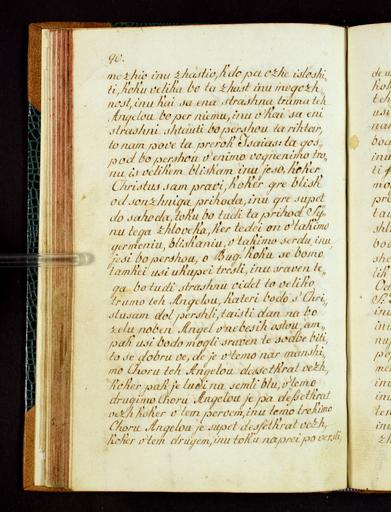 90.
mozhio inu zhastio, kdo pa ozhe isloshi,
ti, koku velika bo ta zhast inu mogozh,
nost, inu kai sa ena strashna truma teh
Angelou bo per niemu, inu o kai sa eni
strashni shtauti bo pershou ta rihtar,
to nam pove ta prerok Isaias: ta gos,
pod bo pershou v'enimo vognenimo tro,
nu is velikem bliskam inu jeso, koker
Christus sam pravi, koker gre blisk
od sonzhniga prihoda, inu gre supet
do sahoda, toku bo tudi ta prihod Sy,
nu tega zhloveka, ker tedei on v'takimo
germeniu, bliskaniu, v'takimo serdu, inu
jesi bo pershou, o Bug! koku se bomo
tamkei usi ukupei tresli, inu sraven te,
ga bo tudi strashnu videt to veliko
trumo teh Angelou, kateri bodo s'Chri,
stusam dol pershli, ta isti dan na bo
zelu noben Angel v'nebesih ostou, am,
pak usi bodo mogli sraven te sodbe biti,
to se dobru ve, de je v'temo nar manshi,
mo Choru teh Angelou dessetkrat vezh,
koker pak je ludi na semli blu, v'temo
drugimo Choru Angelou je pa desetkrat
vezh koker v'tem pervem, inu temo trekimo
Choru Angelou je supet desfetkrat vezh,
koker v'tem drugem, inu toku naprei po versti,